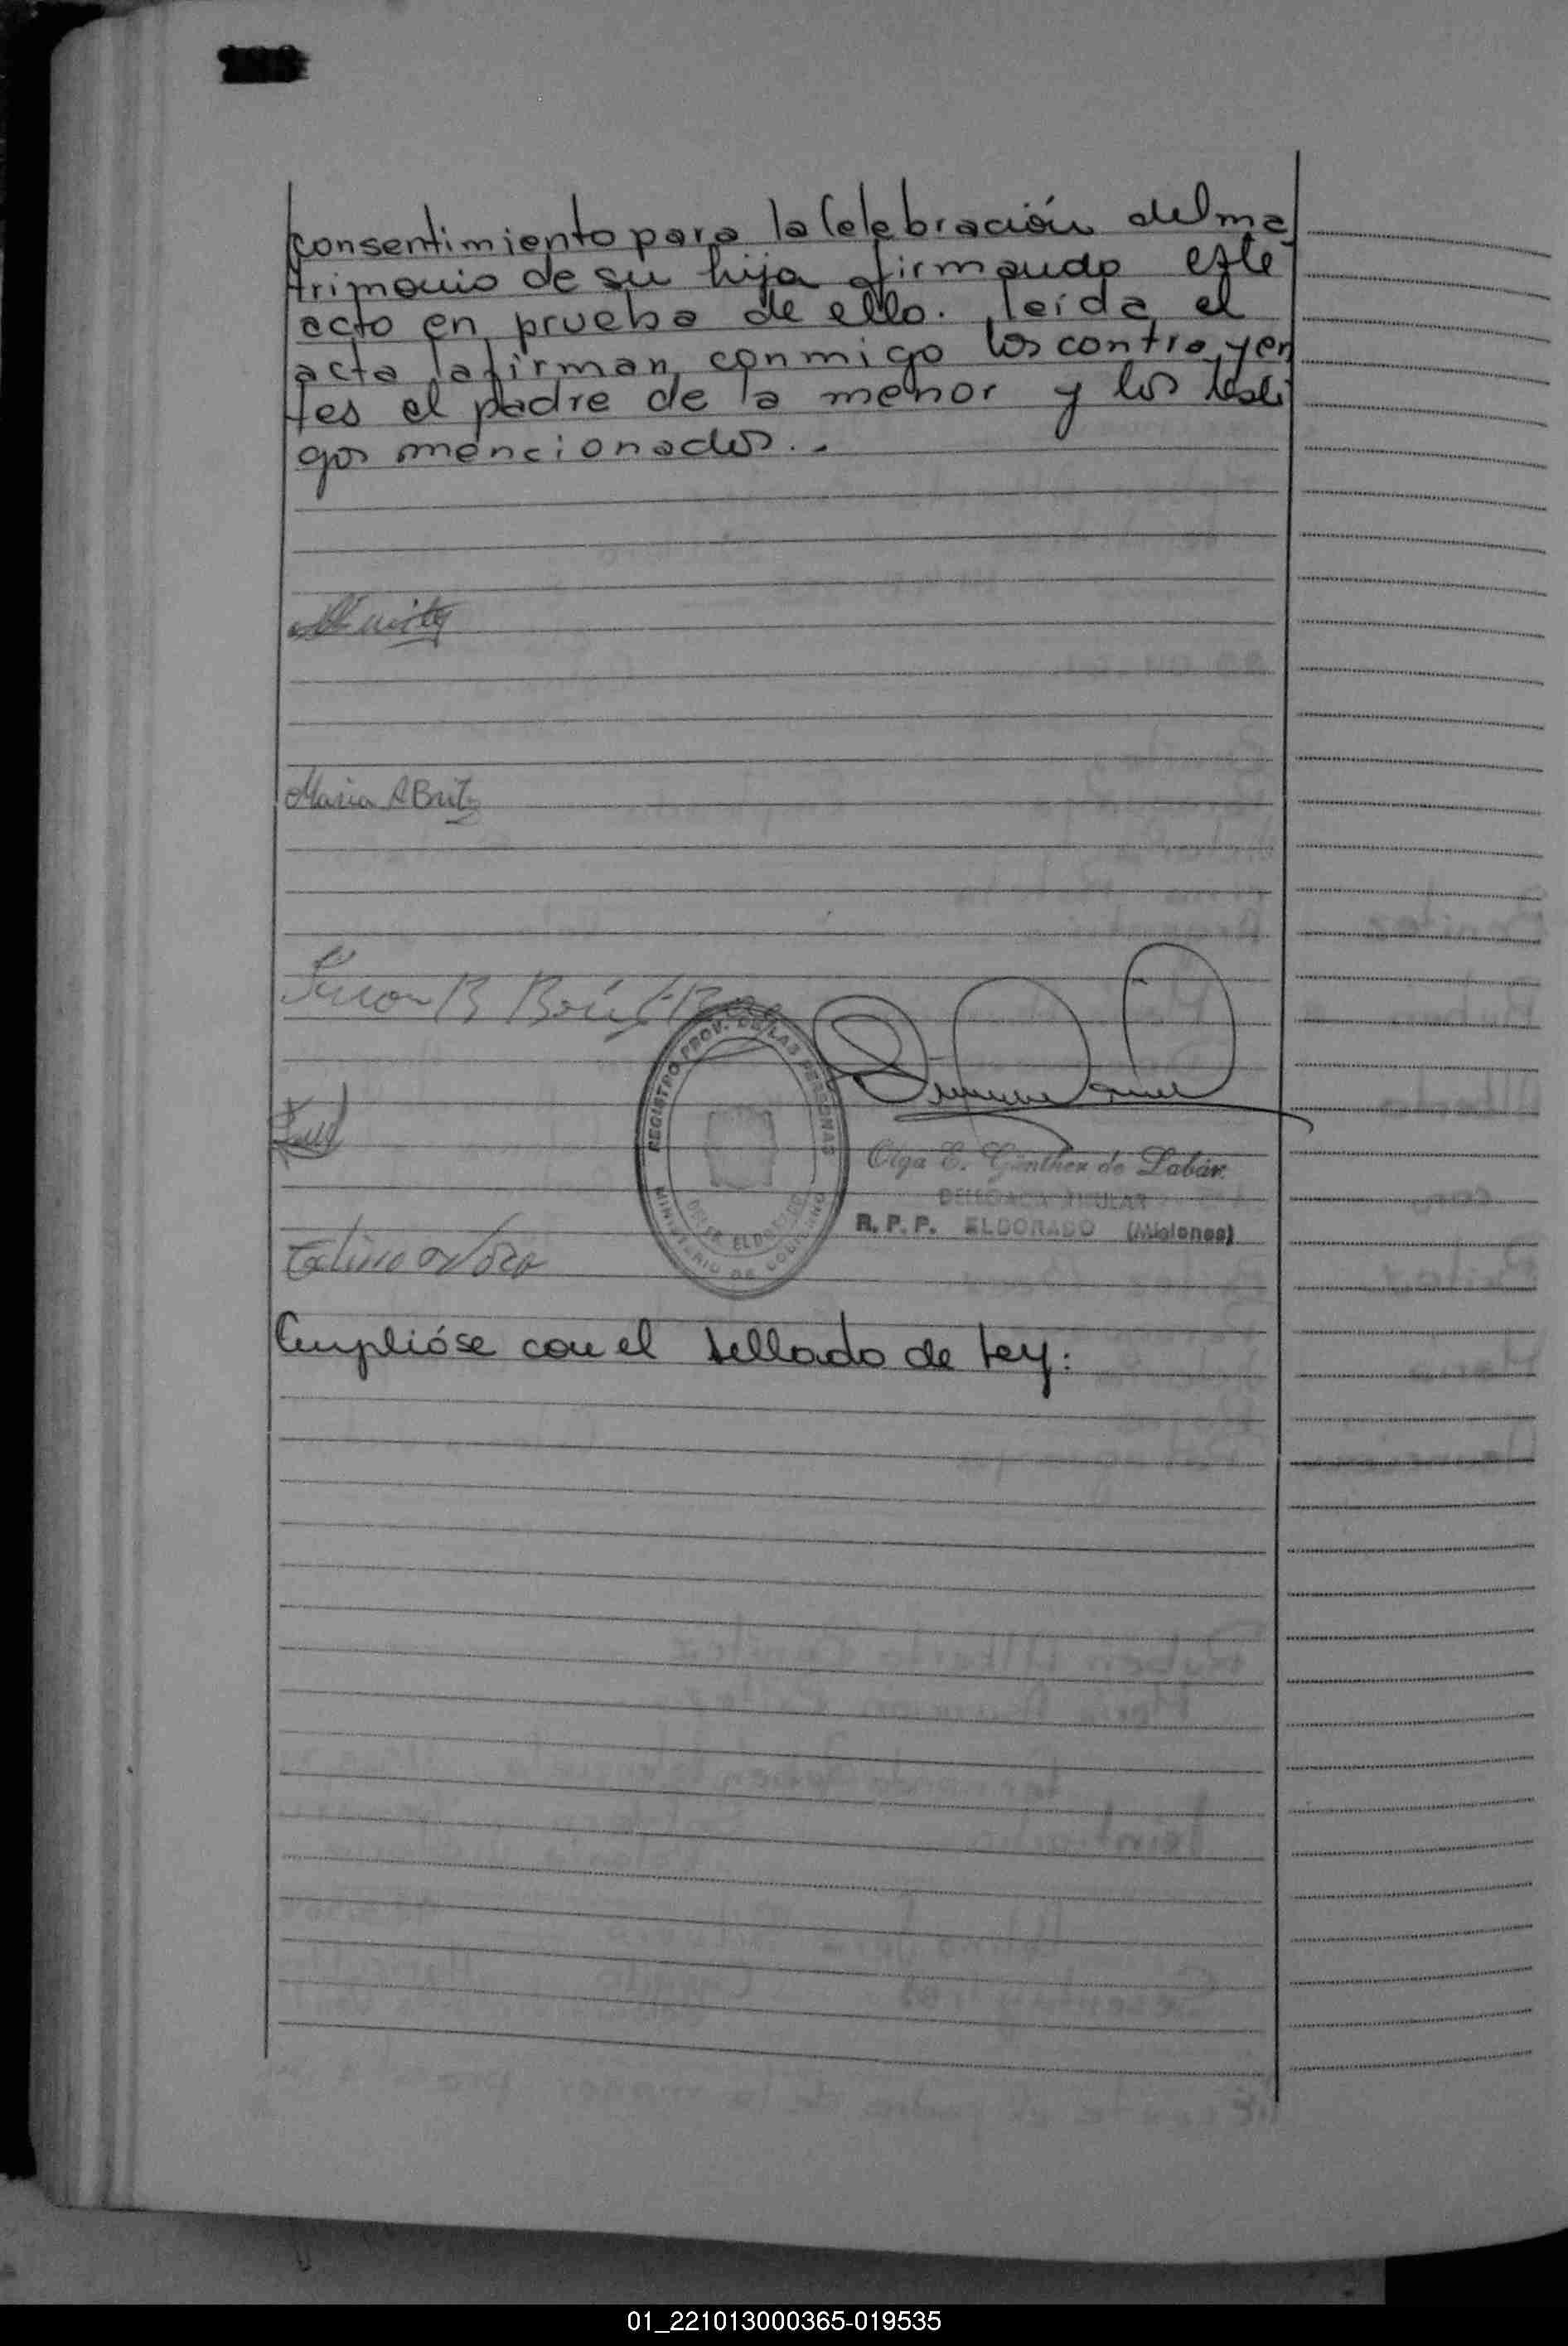 consentimiento para la Celebración del ma
trimonio de su hija firmando este
acto en prueba de ello. leída el
acta la firman conmigo los contrayen
tes el padre de la menor y los testi
gos mencionados..
Maria A Britz
REGISTRO PROV. DE LAS PERSONAS
MINISTERIO DE GOBIERNO
ELDORADO
Olga E. Günther de Labár
DELEGADA TITULAR
R. P. P. ELDORADO (Misiones)
Cumplióse con el sellado de Ley:
01_221013000365-019535